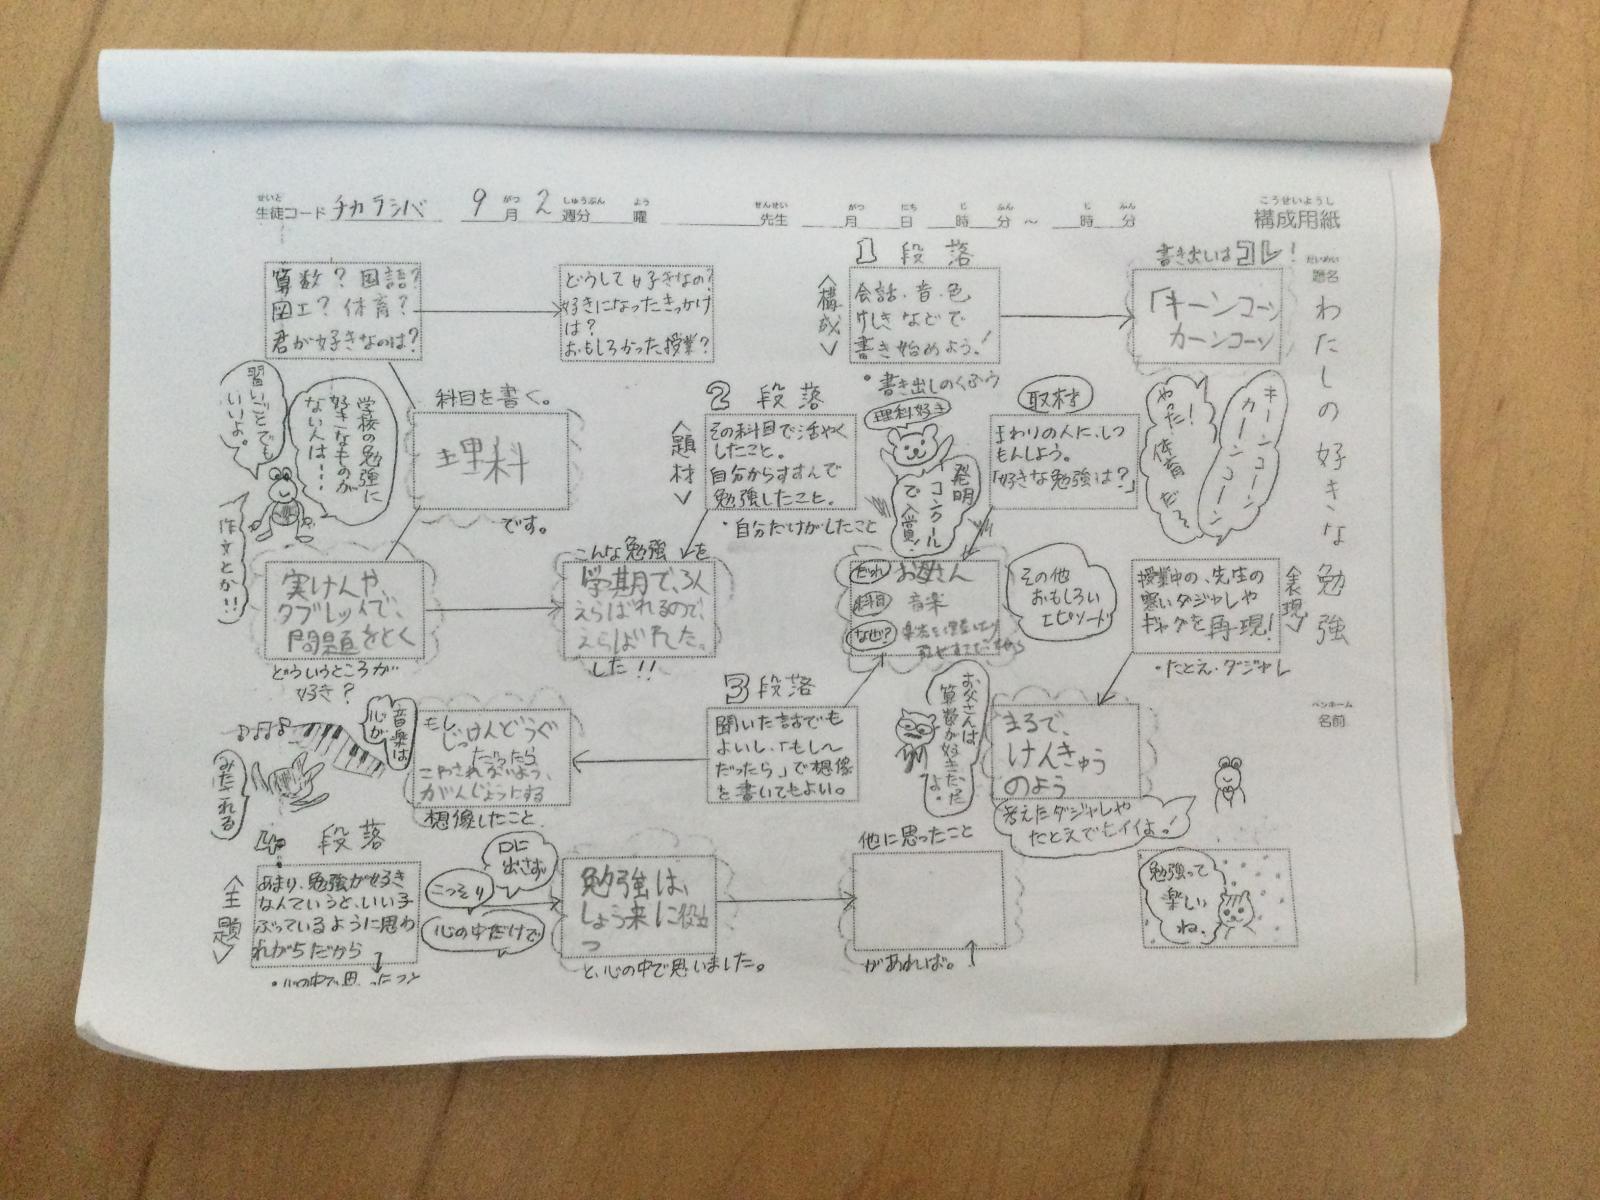 せいと がつ しゅうぶん よう せんせい がつ にち じ ふん じ ふん こうせいようし
生徒コード チカラシバ 9月 2週分 曜 先生 月 日 時 分 ～ 時 分 構成用紙
だいめい
題名
わたしの好きな勉強
ペンネーム
名前
1 段落
〈構成〉
会話・音・色
けしきなどで
書き始めよう!
・書き出しのくふう
書き出しはコレ!
「キーンコーン
カーンコーン
キーンコーン
カーンコーン
やった!
体育だ～
算数? 国語?
図工? 体育?
君が好きなのは?
どうして好きなの?
好きになったきっかけ
は?
おもしろかった授業?
科目を書く。
理科
です。
学校の勉強に
好きなものが
ない人は…
習いごとでも
いいよ。
作文とか!!
実けんや、
タブレットで、
問題をとく
どういうところが
好き?
2 段落
〈題材〉
その科目で活やく
したこと。
自分からすすんで
勉強したこと。
・自分だけがしたこと
理科好き
発明
コンクール
で入賞!
こんな勉強を
学期で、3人
えらばれるので、
えらばれた。
した!!
取材
まわりの人に、しつ
もんしよう。
「好きな勉強は?」
だれ お母さん
科目 音楽
なぜ?
その他
おもしろい
エピソード
〈表現〉
授業中の、先生の
寒いダジャレや
ギャグを再現!
・たとえ・ダジャレ
まるで、
けんきゅう
のよう
考えたダジャレや
たとえでヒイイよ!
3 段落
聞いた話でも
よいし、「もし～
だったら」で想像
を書いてもよい。
お父さんは
算数が好きだった
よ。
もし
じっけんどうぐ
だったら
こわされないよう、
がんじょうにする
想像したこと
音楽は
心が
みたされる
4 段落
〈主題〉
あまり、勉強が好き
なんていうと、いい子
ぶっているように思わ
れがちだから
口に
出さず
こっそり
心の中だけで
勉強は、
しょう来に役立
つ
と、心の中で思いました。
他に思ったこと
があれば。
勉強って
楽しい
ね。